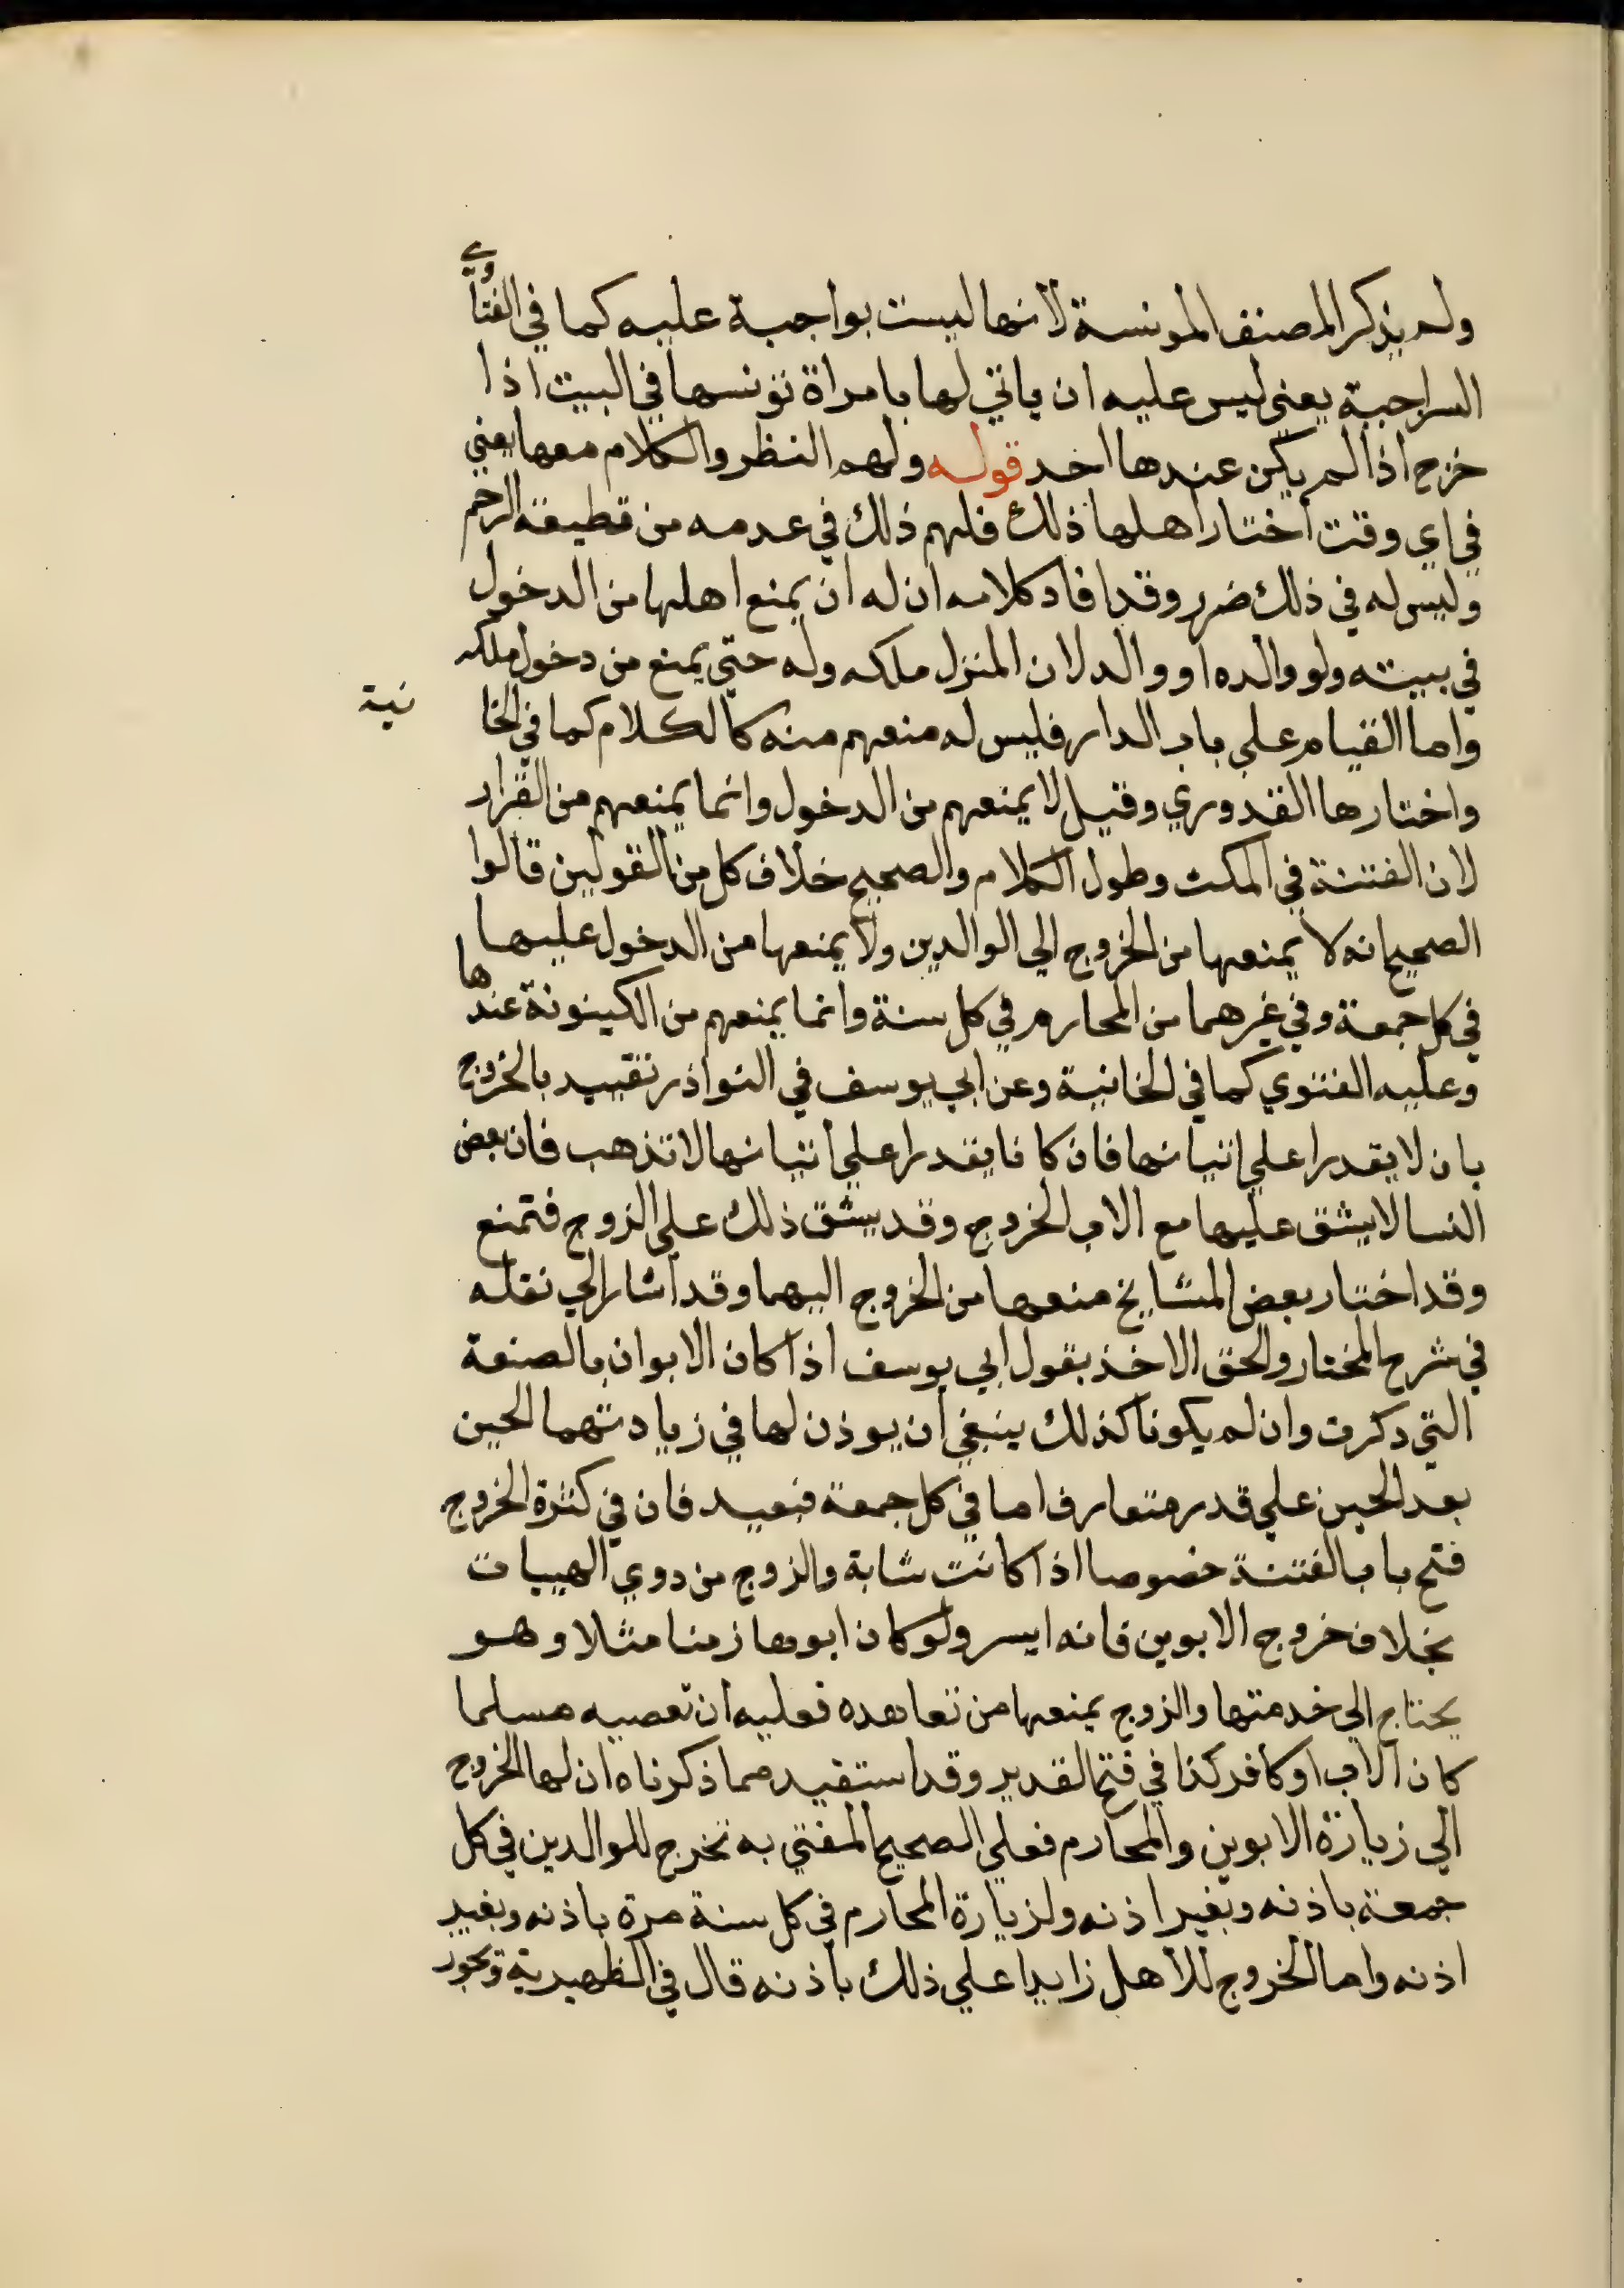 ولم يذكر المصنف المونسة لانها ليست بواجبة عليه كما في الفتاوي
السراجية يعني ليس عليه ان ياتي لها بامراة تونسها في البيت اذا
خرج اذا لم يكن عندها احد قوله ولهم النظر والكلام معها يعني
في اي وقت اختار اهلها ذلك فلهم ذلك في عدمه من قطيعة الرحم
وليس له في ذلك ضرر وقد افاد كلامه ان له ان يمنع اهلها من الدخول
في بيته ولو والده او والد لان المنزل ملكه وله حتي يمنع من دخول ملكه
واما القيام علي باب الدار فليس له منعهم منه كالكلام كما في الخانية
واختارها القدوري وقيل لا يمنعهم من الدخول وانما يمنعهم من القرار
لان الفتنة في المكث وطول الكلام والصحيح خلاف كل من القولين قالوا
الصحيح انه لا يمنعها من الخروج الي الوالدين ولا يمنعها من الدخول عليها
في كل جمعة وفي غيرهما من المحارم في كل سنة وانما يمنعهم من الكينونة عندها
وعليه الفتوي كما في الخانية وعن ابي يوسف في النواذر تقييد بالخروج
بان لا يقدرا علي اتيانها فان كانا يقدرا علي اتيانها لا تذهب فان بعض
النسا لا يشق عليها مع الاب الخروج وقد يشق ذلك علي الزوج فتمنع
وقد اختار بعض المشايخ منعها من الخروج اليهما وقد اشار الي نقله
في شرح المختار والحق الاخذ بقول ابي يوسف اذا كان الابوان بالصنعة
التي ذكرت وان لم يكونا كذلك ينبغي ان يوذن لها في زيادتهما الحين
بعد الحين علي قدر متعارف اما في كل جمعة فبعيد فان في كثرة الخروج
فتح باب الفتنة خصوصا اذا كانت شابة والزوج من دوي الهييات
بخلاف خروج الابوين فانه ايسر ولو كان ابوها زمنا مثلا وهو
يحتاج الي خدمتها والزوج يمنعها من تعاهده فعليه ان تعصيه مسلما
كان الاب او كافر كذا في فتح القدير وقد استفيد مما ذكرناه ان لها الخروج
الي زيارة الابوين والمحارم فعلي الصحيح المفتي به تخرج للوالدين في كل
جمعة باذنه وبغير اذنه ولزيارة المحارم في كل سنة مرة باذنه وبغير
اذنه واما الخروج للاهل زايدا علي ذلك باذنه قال في الظهيرية ويجوز